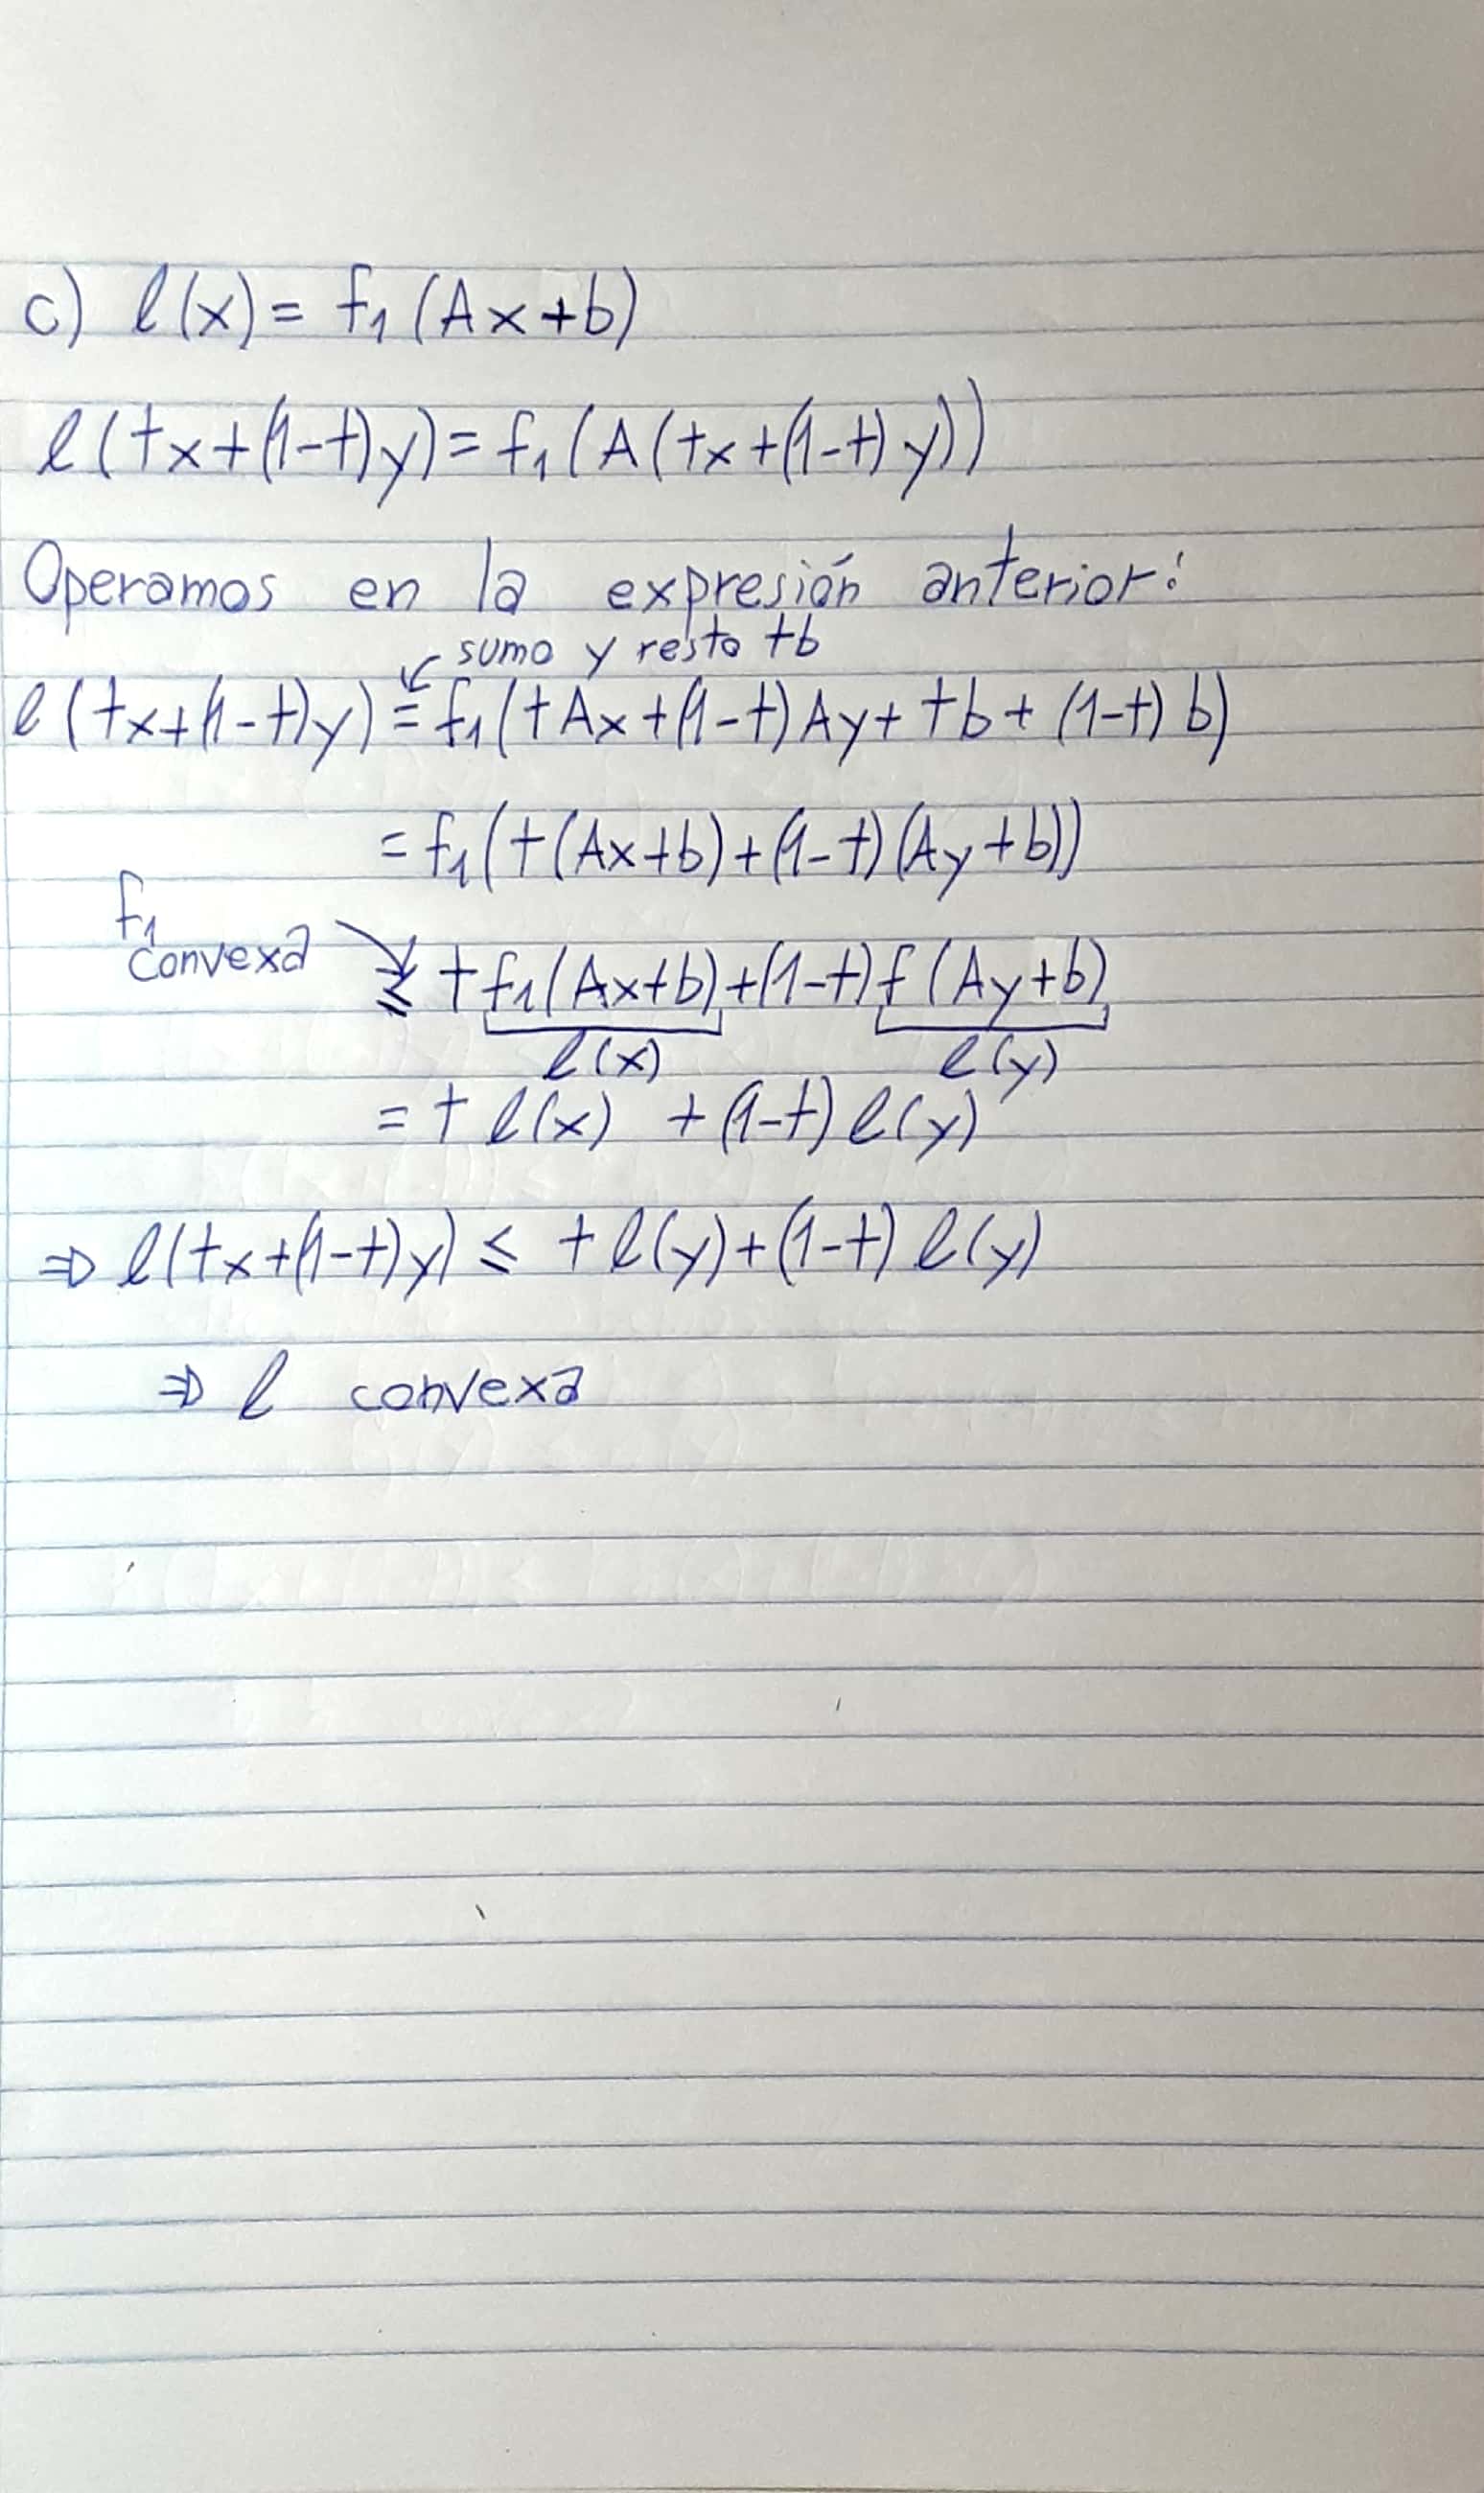 c) l(x) = f₁(Ax+b)
l(tx+(1-t)y) = f₁(A(tx+(1-t)y))
Operamos en la expresión anterior:
sumo y resto tb
l(tx+(1-t)y) = f₁(tAx+(1-t)Ay+tb+(1-t)b)
= f₁(t(Ax+b)+(1-t)(Ay+b))
f₁
convexa ≤ t f₁(Ax+b)+(1-t)f(Ay+b)
l(x) l(y)
= t l(x) + (1-t) l(y)
⇒ l(tx+(1-t)y) ≤ t l(y)+(1-t) l(y)
⇒ l convexa